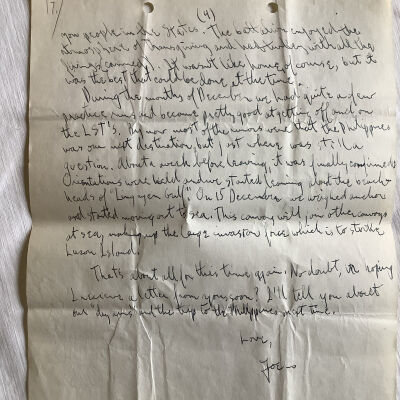 7/
(4)
you people in the States. The battalion enjoyed the
atmosphere of Thanksgiving and with all the
. It wasn't like home of course, but it
was the best that could be done at the time.
During the months of December we had quite a few
practice runs and became pretty good at getting off and on
the LST's. By now most of the rumors were that the Philippines
was our next destination, but just where was still a
question. About a week before leaving, it was finally confirmed.
Orientations were held and we started learning about the beach-
heads of "Lingayen Gulf". On 15 December we weighed anchor
and started moving out to sea. This convoy will join other convoys
at sea, making up the large invasion force which is to strike
Luzon Island.
That's about all for this time again. No doubt, I'm hoping
I receive a letter from you soon? I'll tell you about
our "dry runs" and the trip to the Philippines next time.
Love,